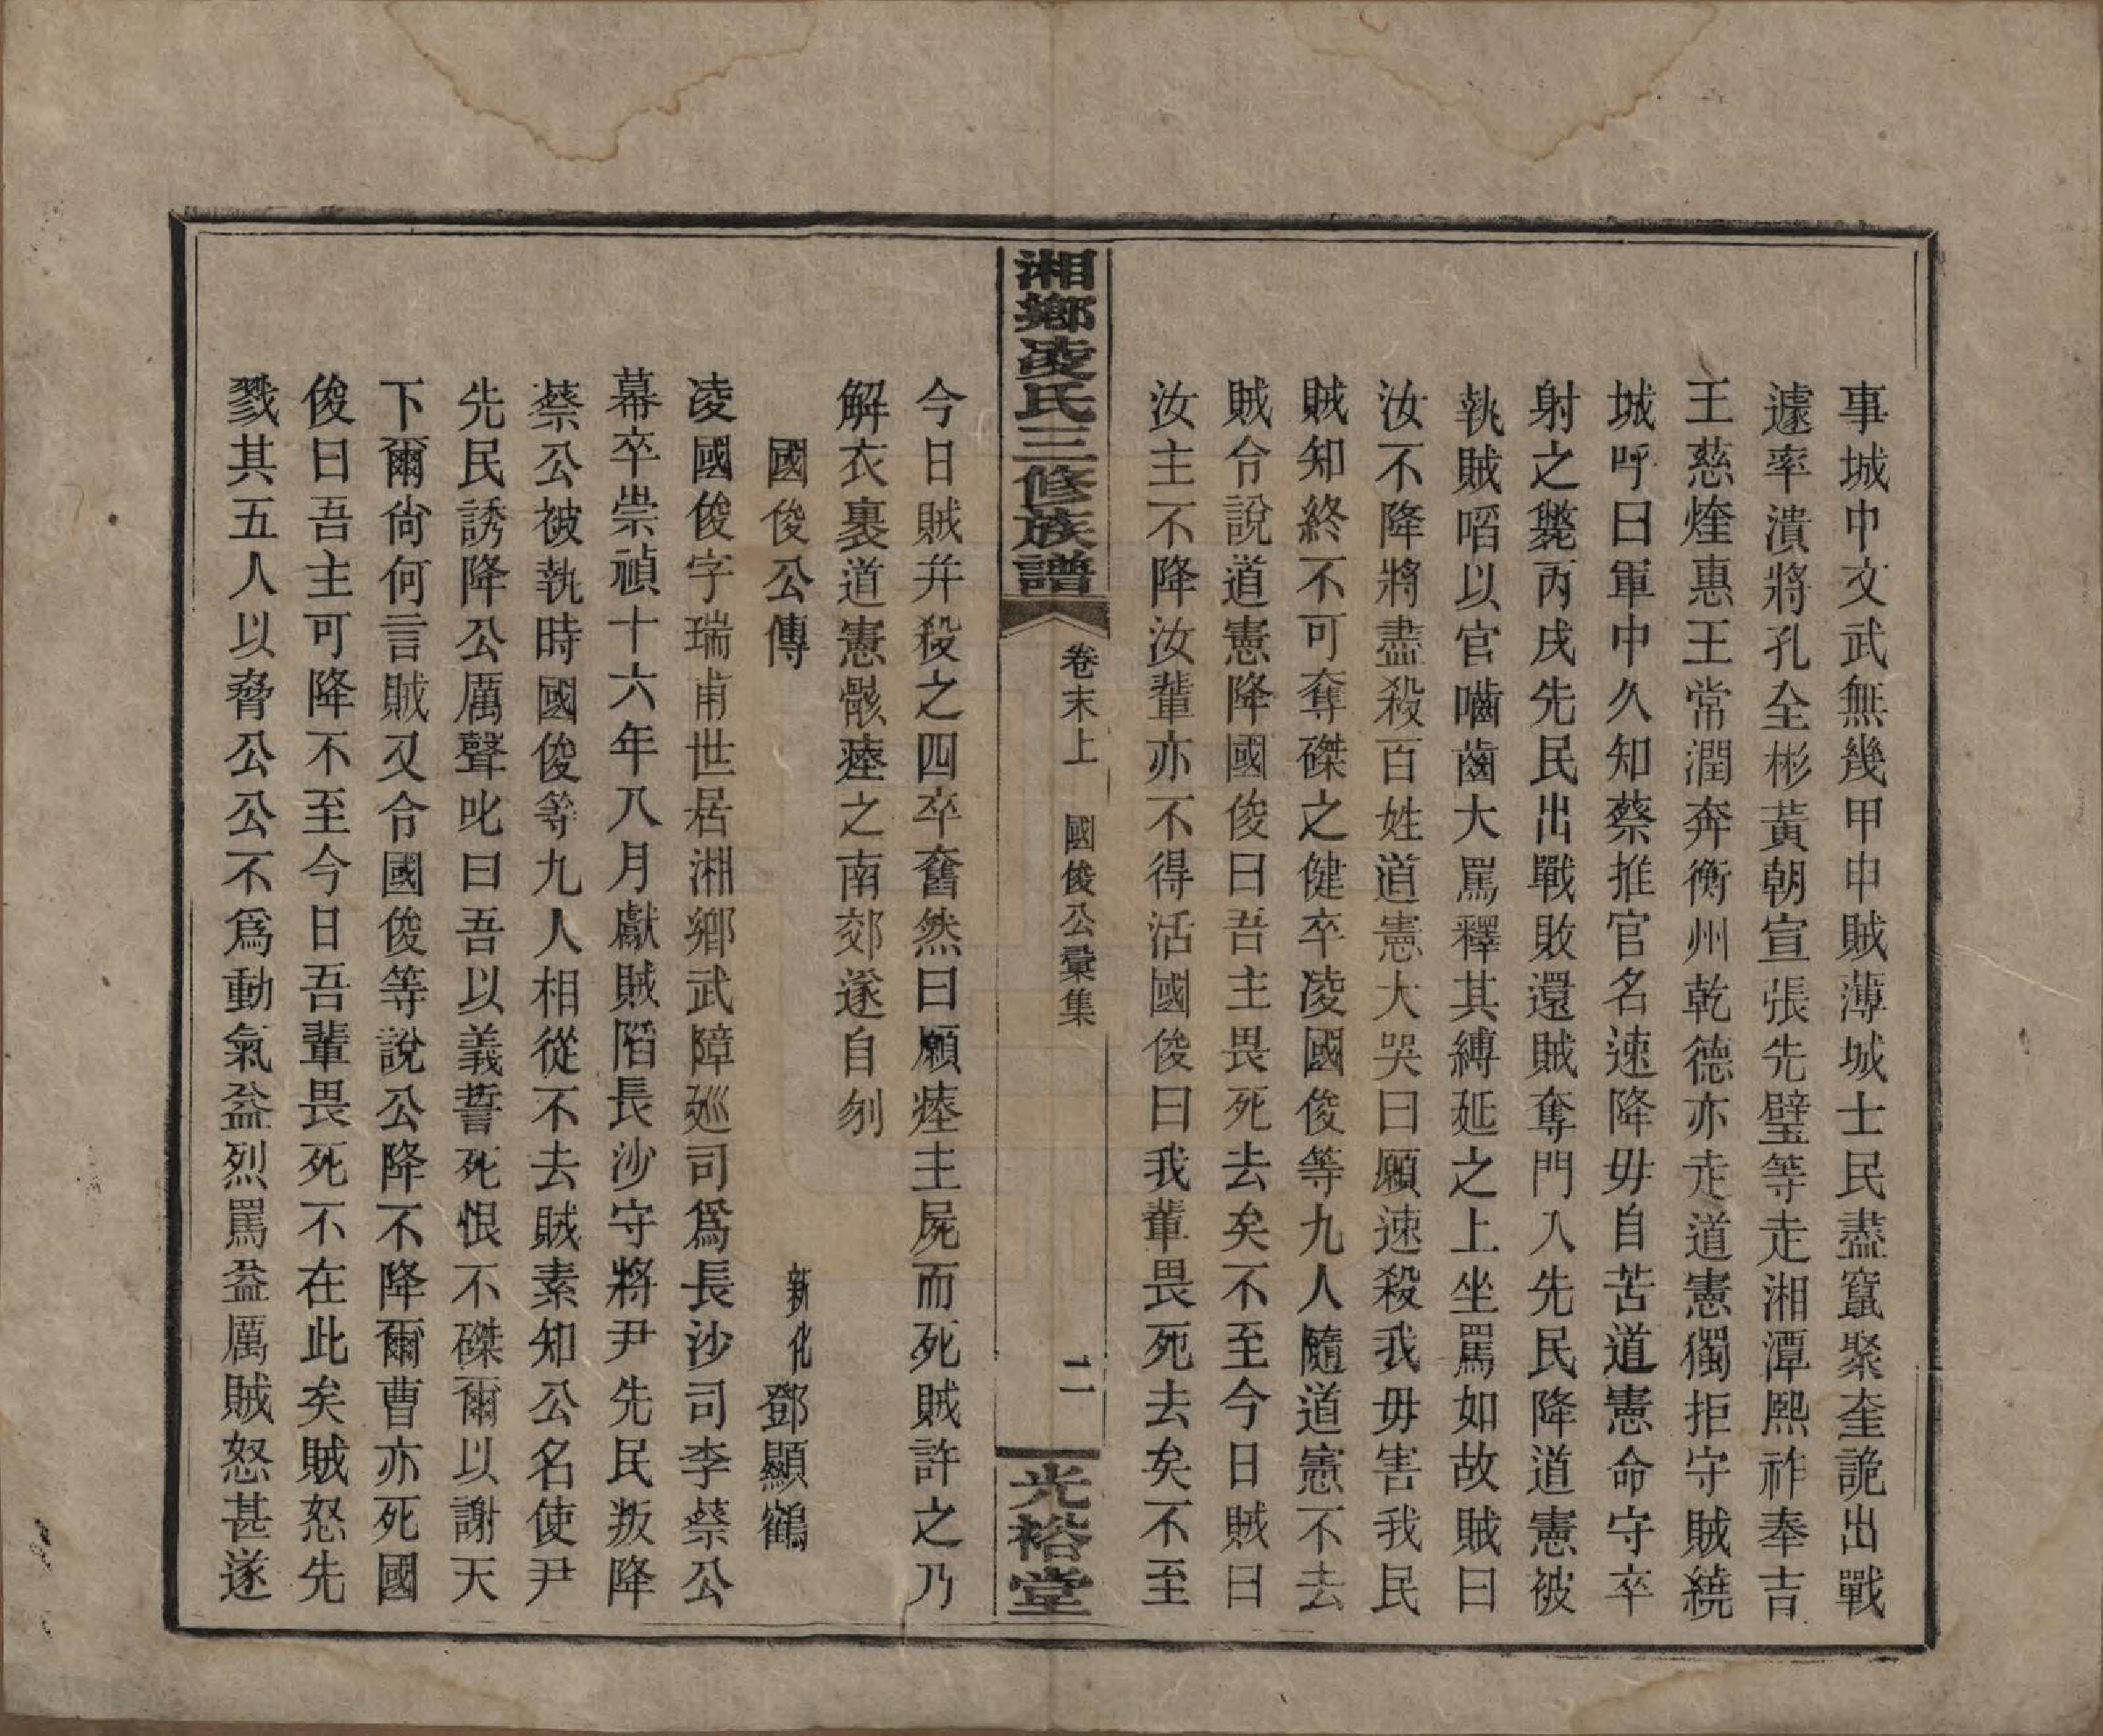 事城中文武無幾甲申賊薄城士民盡竄聚奎詭出戰
遽率潰將孔全彬黃朝宣張先壁等走湘潭熙祚奉吉
王慈煃惠王常潤奔衡州乾德亦走道憲獨拒守賊繞
城呼曰軍中久知蔡推官名速降毋自苦道憲命守卒
射之斃丙戌先民出戰敗還賊奪門入先民降道憲被
執賊啗以官嚙齒大罵釋其縛延之上坐罵如故賊曰
汝不降將盡殺百姓道憲大哭曰願速殺我毋害我民
賊知終不可奪磔之健卒凌國俊等九人隨道憲不去
賊令說道憲降國俊曰吾主畏死去矣不至今日賊曰
汝主不降汝輩亦不得活國俊曰我輩畏死去矣不至
湘鄉凌氏三修族譜 卷末上 國俊公彙集 二 光裕堂
今日賊幷殺之四卒奮然曰願瘞主屍而死賊許之乃
解衣裹道憲骸瘞之南郊遂自刎
國俊公傳 新化鄧顯鶴
凌國俊字瑞甫世居湘鄉武障廵司爲長沙司李蔡公
幕卒崇禎十六年八月獻賊陷長沙守將尹先民叛降
蔡公被執時國俊等九人相從不去賊素知公名使尹
先民誘降公厲聲叱曰吾以義誓死恨不磔爾以謝天
下爾尙何言賊又令國俊等說公降不降爾曹亦死國
俊曰吾主可降不至今日吾輩畏死不在此矣賊怒先
戮其五人以脅公公不爲動氣益烈罵益厲賊怒甚遂